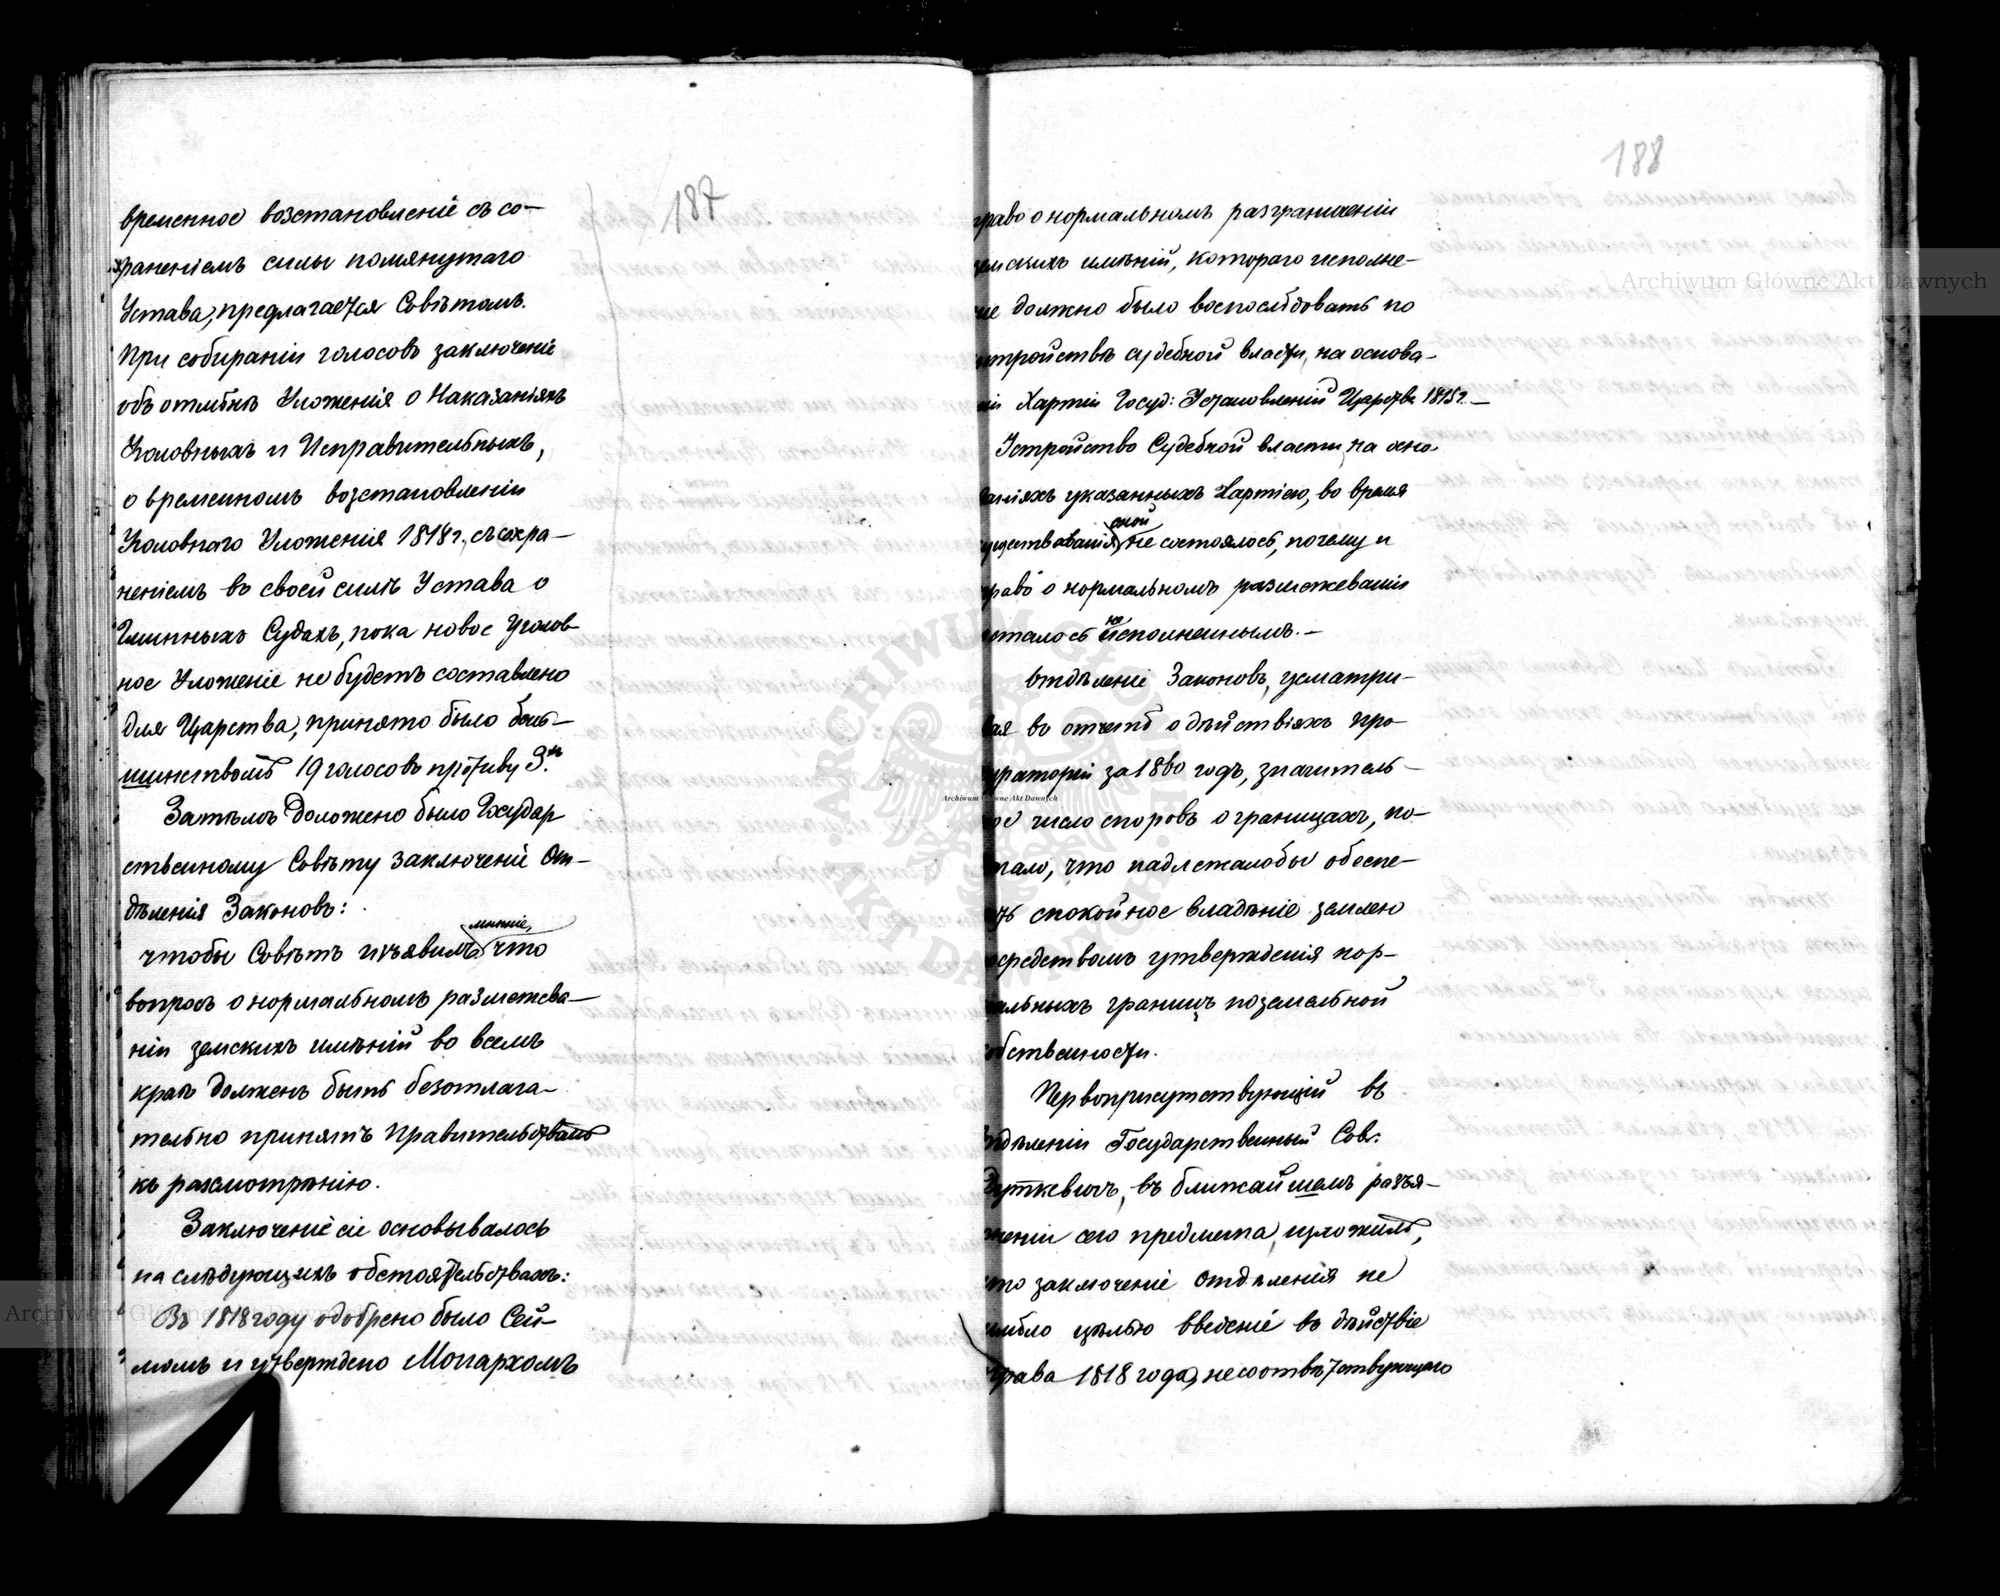 187
временное возстановленіе съ со-
храненіемъ силы помянутаго
Устава, предлагается Совѣтомъ.
При собираніи голосовъ заключеніе
объ отмѣнѣ Уложенія о Наказаніяхъ
Уголовныхъ и Исправительныхъ,
о временномъ возстановленіи
Уголовнаго Уложенія 1818 г., съ сохра-
неніемъ въ своей силѣ Устава о
Гминныхъ Судахъ, пока новое Уголов-
ное Уложеніе не будетъ составлено
для Царства, принято было боль-
шинствомъ 19 голосовъ противу 3.хъ
Затѣмъ доложено было Государ
ственному Совѣту заключеніе От-
дѣленія Законовъ:
мнѣніе,
чтобы Совѣтъ изъявилъ что
вопросъ о нормальномъ размежева-
ніи земскихъ имѣній во всемъ
краѣ долженъ быть безотлага-
тельно принятъ Правительствомъ
къ разсмотрѣнію.
Заключеніе сіе основывалось
на слѣдующихъ обстоятельствахъ:
Въ 1818 году одобрено было Сей-
момъ и утверждено Монархомъ
188
право о нормальномъ разграниченіи
земскихъ имѣній, котораго исполне-
ніе должно было воспослѣдовать по
устройствѣ судебной власти, на основа-
ніи Хартіи Госуд: Установленій Царства 1815 г. -
Устройство Судебной власти на осно-
ваніяхъ указанныхъ Хартіею, во время
оной
существованія не состоялось, почему и
право о нормальномъ размежеваніи
не
осталось исполненнымъ. -
Отдѣленіе Законовъ, усматри-
вая въ отчетѣ о дѣйствіяхъ Про-
кураторіи за 1860 годъ, значитель-
ное число споровъ о границахъ, по-
лагало, что надлежалобы обезпе-
чить спокойное владѣніе землею
посредствомъ утвержденія нор-
мальныхъ границъ поземельной
собственности.
Первоприсутствующій въ
Отдѣленіи Государственный Сов:
Дуткевичъ, въ ближайшемъ разъя-
сненіи сего предмета, изложилъ,
что заключеніе Отдѣленія не
имѣло цѣлью введеніе въ дѣйствіе
права 1818 года, несоотвѣтствующаго
Archiwum Główne Akt Dawnych
Archiwum Główne Akt Dawnych
Archiwum Główne Akt Dawnych